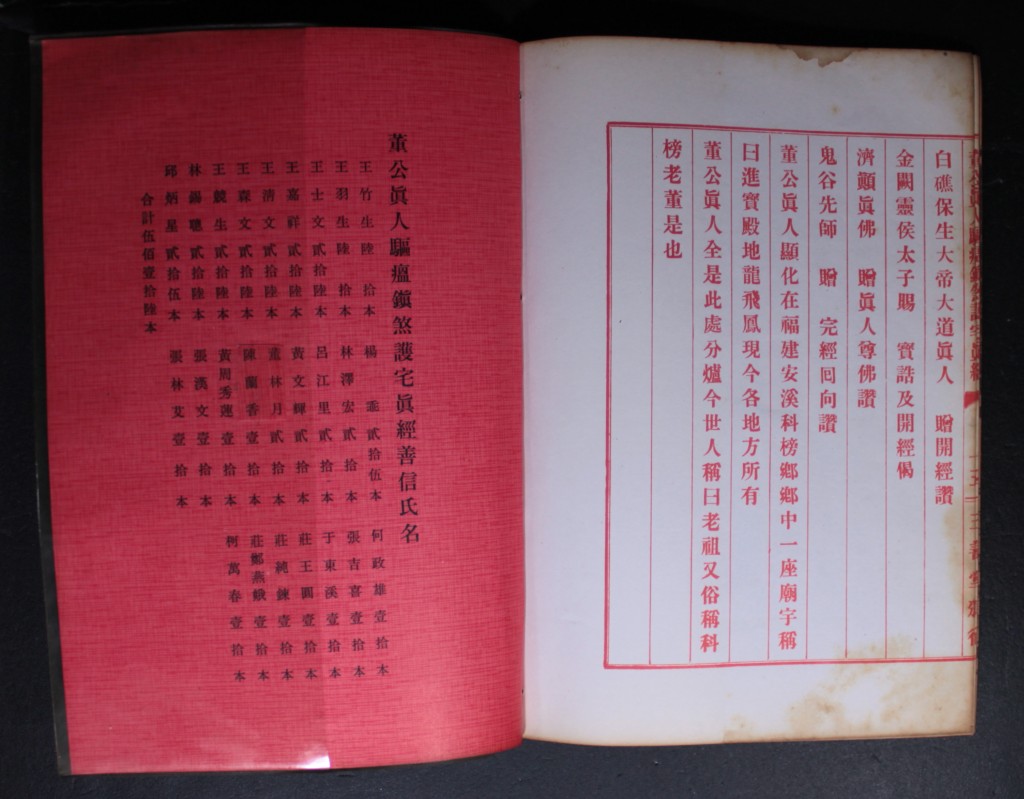 白礁保生大帝大道眞人　贈開經讚
金闕靈侯太子賜　寶誥及開經偈
濟顚眞佛　贈眞人尊佛讚
鬼谷先師　贈　完經囘向讚
董公眞人顯化在福建安溪科榜鄉鄉中一座廟宇稱
曰進寶殿地龍飛鳳現今各地方所有
董公眞人全是此處分爐今世人稱曰老祖又俗稱科
榜老董是也
董公眞人驅瘟鎭煞護宅眞經善信氏名
王竹生陸　拾本
楊　　貳拾伍本
何政雄壹拾本
王羽生陸　拾本
林澤宏貳拾本
張吉喜壹拾本
王士文貳拾陸本
呂江里貳拾本
于東溪壹拾本
王嘉祥貳拾陸本
黃文輝貳拾本
莊王圓壹拾本
王清文貳拾陸本
董林月貳拾本
莊純鍊壹拾本
王森文貳拾陸本
陳蘭香壹拾本
莊鄭燕娥壹拾本
王競生貳拾陸本
黃周秀蓮壹拾本
柯萬春壹拾本
林錫聰貳拾陸本
張漢文壹拾本
邱炳星貳拾伍本
張林艾壹拾本
合計伍佰壹拾陸本